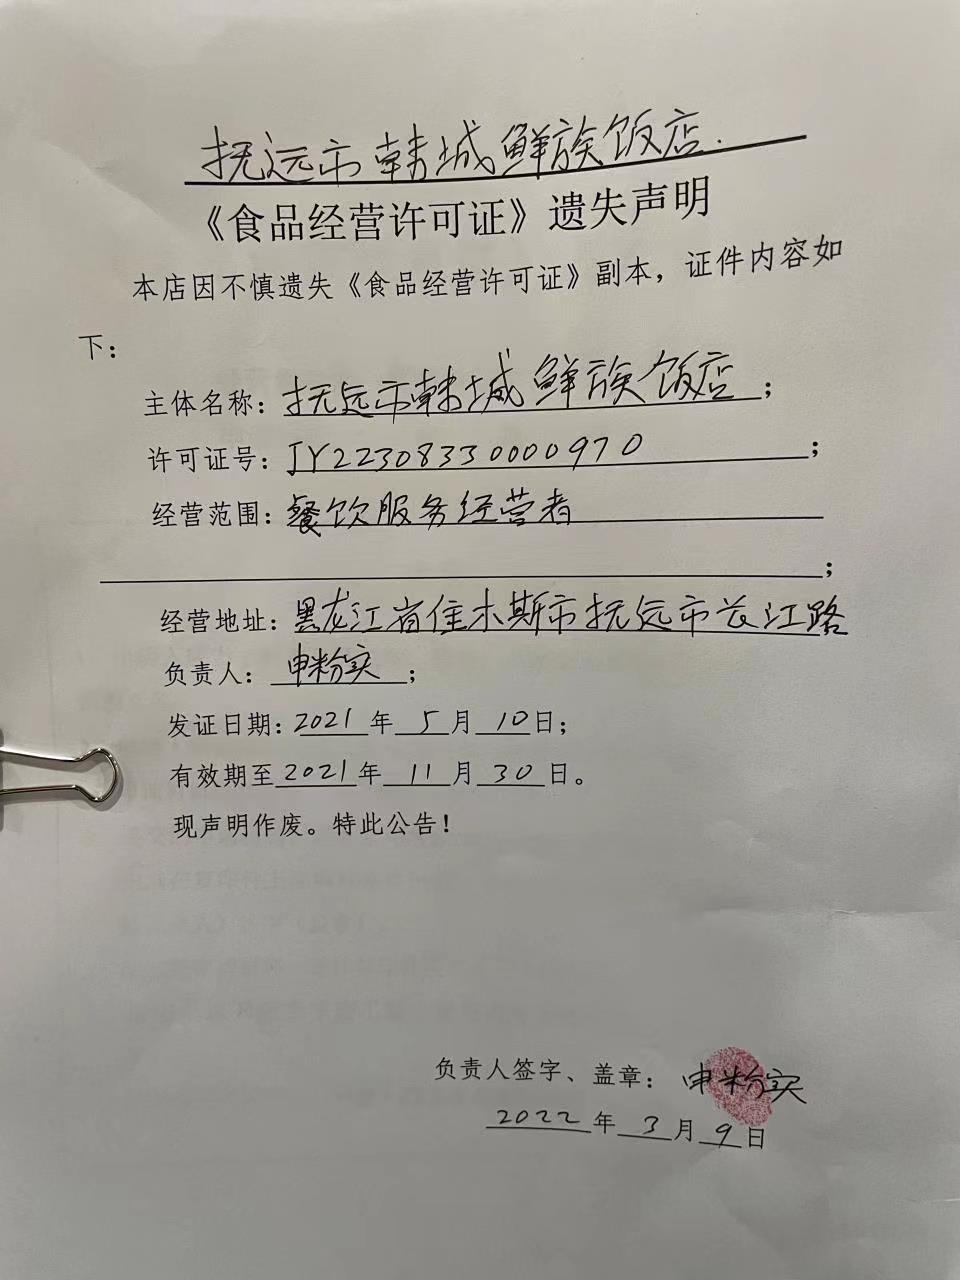 抚远市韩城鲜族饭店.
《食品经营许可证》遗失声明
本店因不慎遗失《食品经营许可证》副本，证件内容如
下：
主体名称：抚远市韩城鲜族饭店；
许可证号：JY22308330000970；
经营范围：餐饮服务经营者
；
经营地址：黑龙江省佳木斯市抚远市长江路
负责人：申粉实；
发证日期：2021年5月10日；
有效期至2021年11月30日。
现声明作废。特此公告！
负责人签字、盖章：申粉实
2022年3月9日